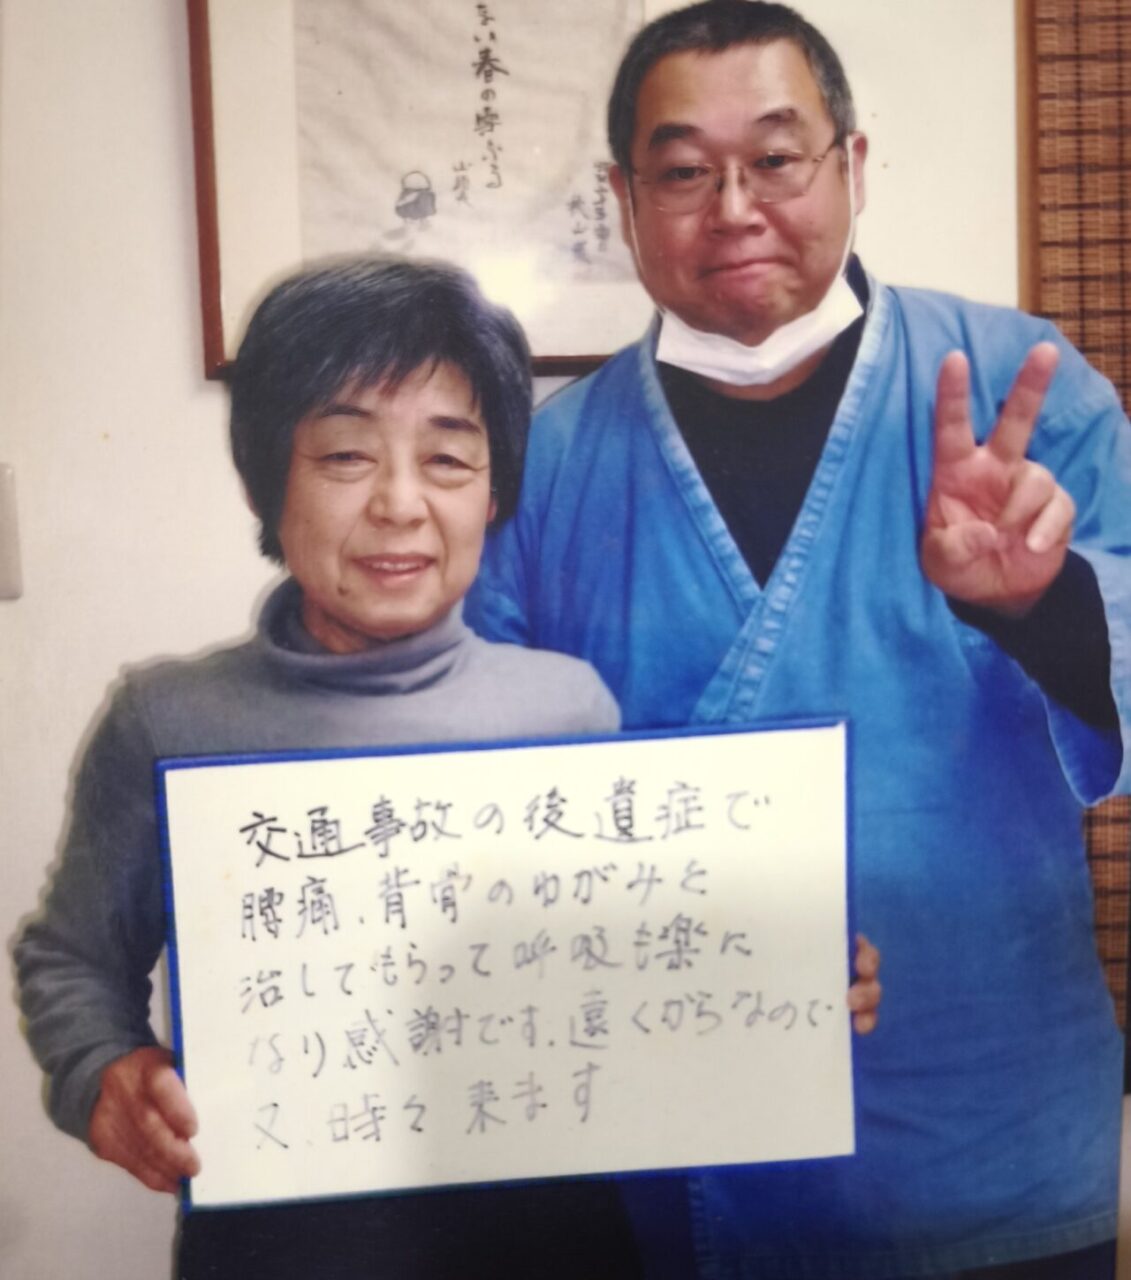 まい春の雪ふる
山頭火
交通事故の後遺症で
腰痛、背骨のゆがみを
治してもらって呼吸も楽に
なり感謝です。遠くからなので
又、時々来ます